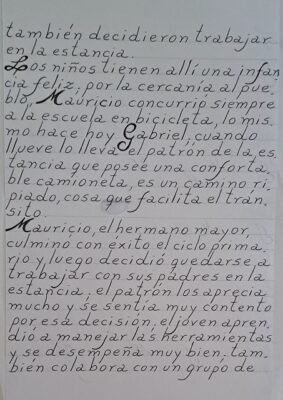 también decidieron trabajar
en la estancia.
Los niños tienen allí una infan
cia feliz; por la cercanía al pue_
blo, Mauricio concurrió siempre
a la escuela en bicicleta, lo mis_
mo hace hoy Gabriel; cuando
llueve lo lleva el patrón de la es_
tancia que posee una conforta_
ble camioneta, es un camino ri_
piado, cosa que facilita el trán_
sito.
Mauricio, el hermano mayor,
culminó con éxito el ciclo prima_
rio y luego decidió quedarse a
trabajar con sus padres en la
estancia; el patrón los aprecia
mucho y se sentía muy contento
por esa decisión; el joven apren_
dió a manejar las herramientas
y se desempeña muy bien; tam_
bién colabora con un grupo de